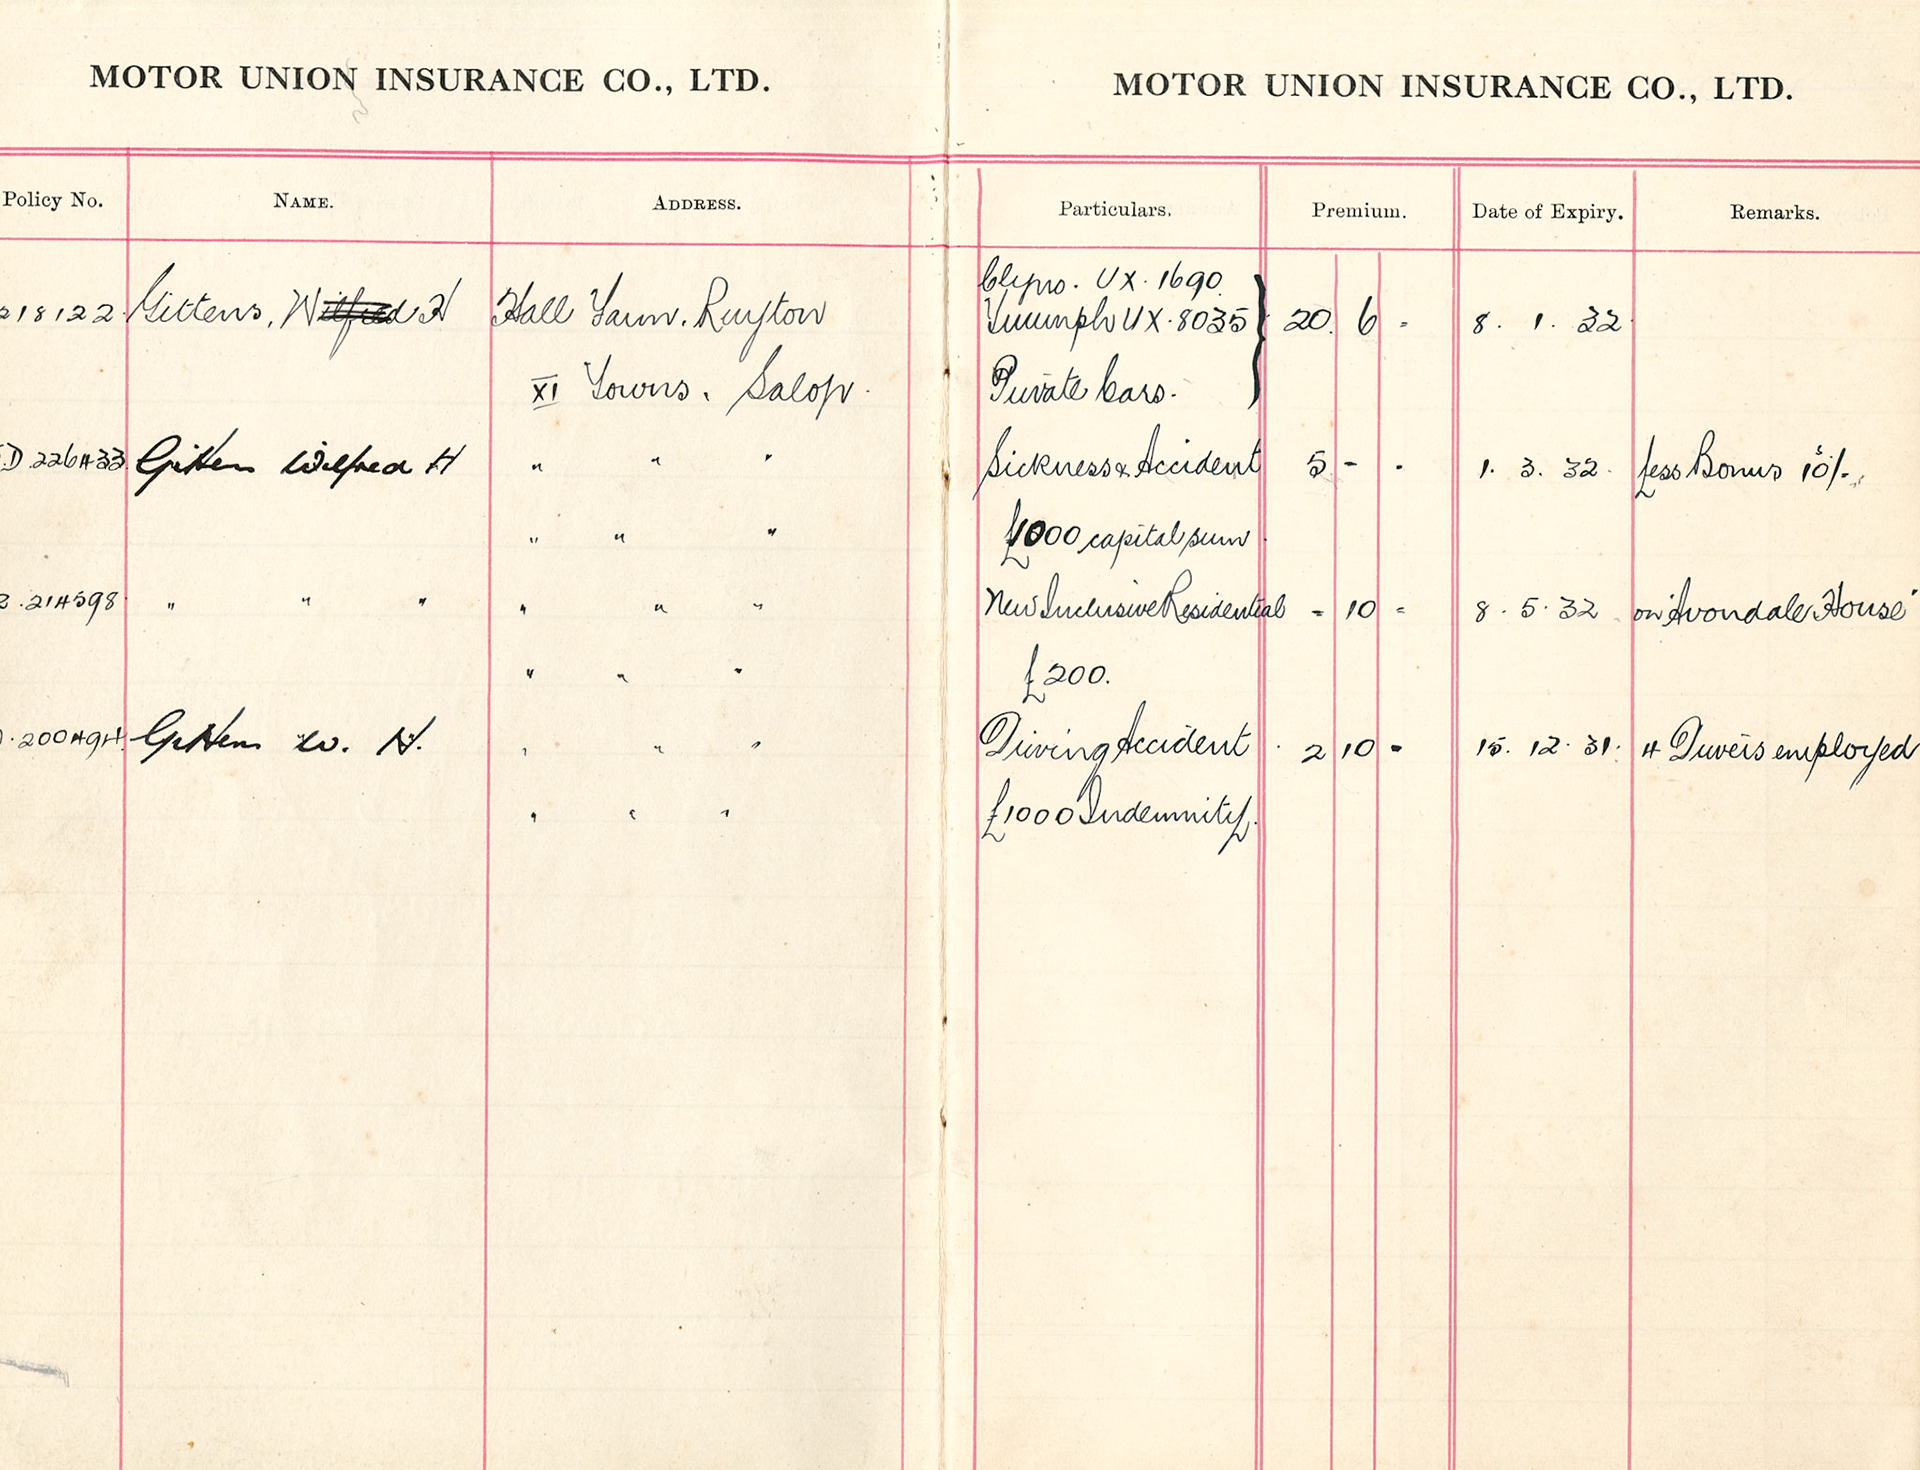 MOTOR UNION INSURANCE CO., LTD. MOTOR UNION INSURANCE CO., LTD.
Policy No. NAME. ADDRESS. Particulars. Premium. Date of Expiry. Remarks.
Clyno. UX. 1690.
218122 Gittens, Wilfred H Hall Farm. Ruyton Triumph UX. 8035 20. 6 - 8. 1. 32
XI Towns. Salop. Private Cars.
D.226433 Gittens Wilfred H " " " Sickness & Accident 5 - - 1. 3. 32. Less Bonus 10/-.
" " " £1000 capital sum.
.214598 " " " " " " New Inclusive Residential - 10 - 8. 5. 32. on "Avondale House"
" " " £200.
.200494 Gittens W. H. " " " Driving Accident 2 10 - 15. 12. 31. 4 Drivers employed
" " " £1000 Indemnity.